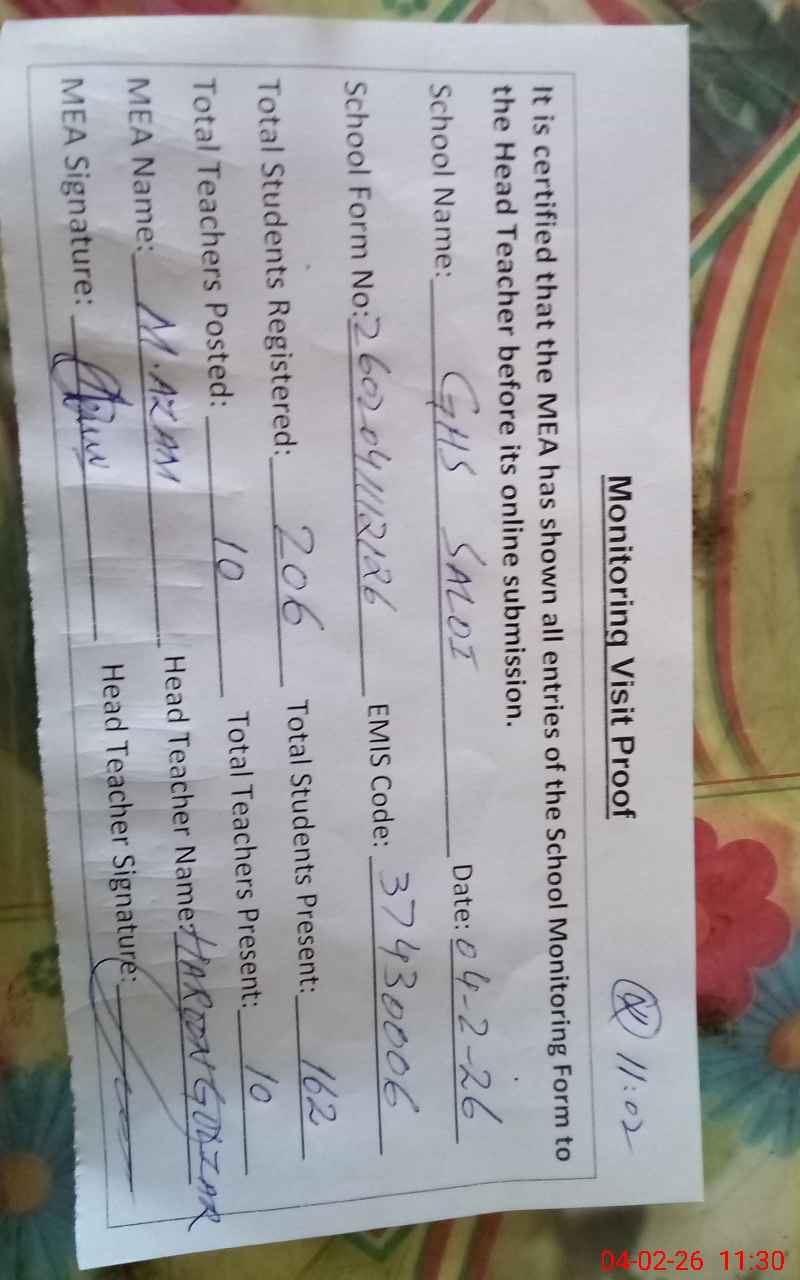 Monitoring Visit Proof
11:02
It is certified that the MEA has shown all entries of the School Monitoring Form to
the Head Teacher before its online submission.
School Name: GHS SALOI Date: 04-2-26
School Form No: 260204112126 EMIS Code: 37430006
Total Students Registered: 206 Total Students Present: 162
Total Teachers Posted: 10 Total Teachers Present: 10
MEA Name: M.AZAM Head Teacher Name: HAROON
MEA Signature: Head Teacher Signature:
04-02-26 11:30